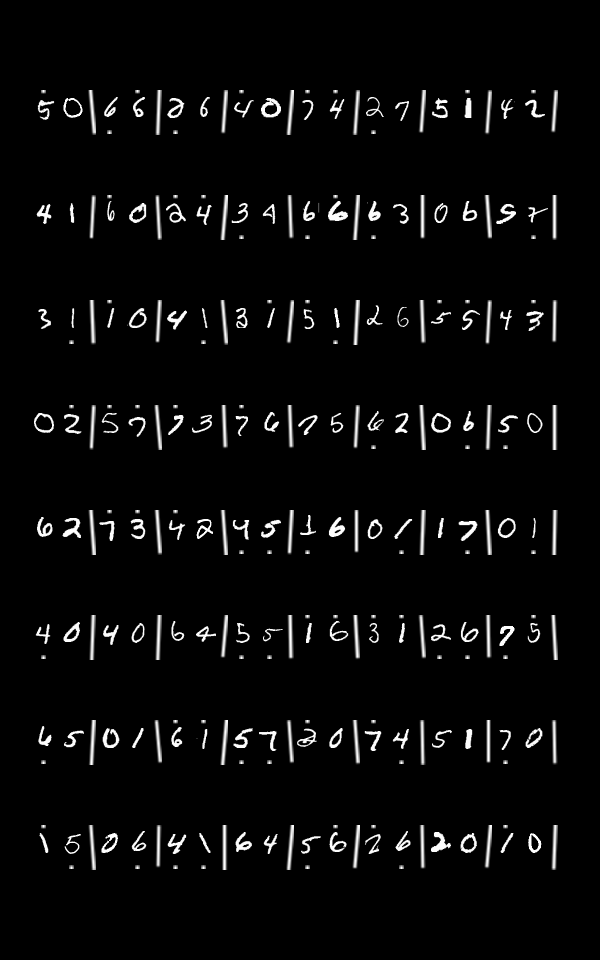 5 0 | 6 6 | 2 6 | 4 0 | 7 4 | 2 7 | 5 1 | 4 2 |
4 1 | 6 0 | 2 4 | 3 4 | 6 6 | 6 3 | 0 6 | 5 7 |
3 1 | 1 0 | 4 1 | 3 1 | 5 1 | 2 6 | 5 5 | 4 3 |
0 2 | 5 7 | 7 3 | 7 6 | 7 5 | 6 2 | 0 6 | 5 0 |
6 2 | 7 3 | 4 2 | 4 5 | 1 6 | 0 1 | 1 7 | 0 1 |
4 0 | 4 0 | 6 4 | 5 5 | 1 6 | 3 1 | 2 6 | 7 5 |
6 5 | 0 1 | 6 1 | 5 7 | 2 0 | 7 4 | 5 1 | 7 0 |
1 5 | 0 6 | 4 1 | 6 4 | 5 6 | 2 6 | 2 0 | 1 0 |